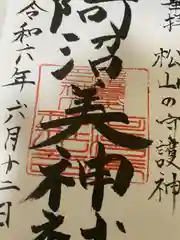 松山の守護神
阿沼美神社
令和六年六月十二日